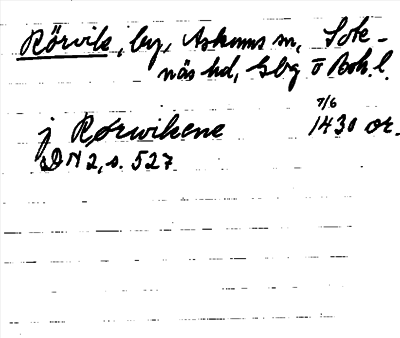 Rörvik, by, Askums sn, Sote-
näs hd, Gbg o Boh. l.
7/6
j Rørwikene 1430 or.
DN 2, s. 527